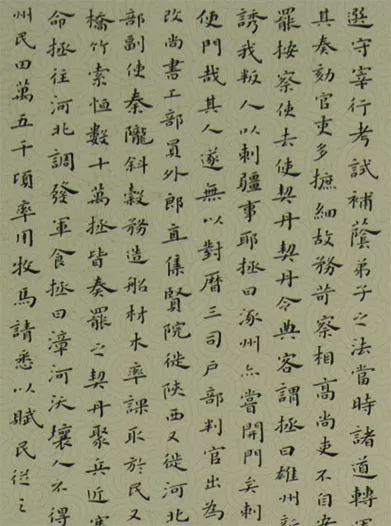 選守宰行考試補蔭弟子之法當時諸道轉
其奏劾官吏多摭細故務苛察相高尚吏不自安
罷按察使去使契丹契丹令典客謂拯曰雄州新
誘我叛人以刺疆事耶拯曰涿州亦嘗開門矣刺
便門哉其人遂無以對曆三司戶部判官出為
改尚書工部員外郎直集賢院徙陝西又徙河北
部副使秦隴斜穀務造船材木率課取於民又
橋竹索恒數十萬拯皆奏罷之契丹聚兵近塞
命拯往河北調發軍食拯曰漳河沃壤人不得
州民田萬五千頃率用牧馬請悉以賦民從之